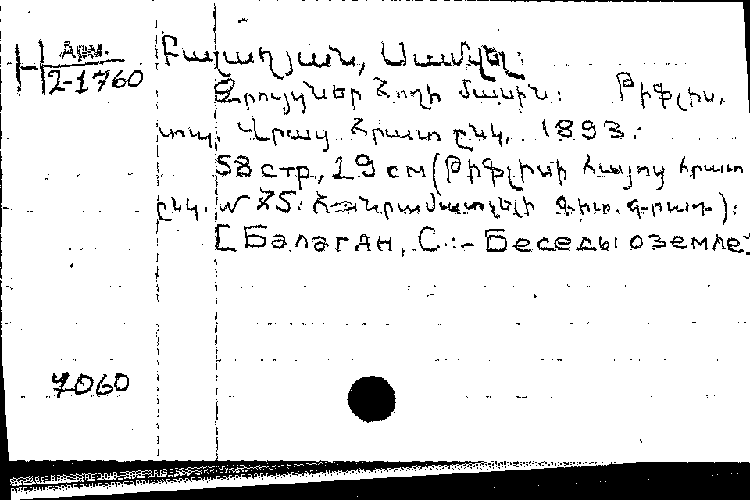 Н Арм.
2-1760
Բալաղյան, Սամվել:
Զրույցներ հողի մասին: Թիֆլիս,
տպ. Վրաց հրատ ընկ, 1893:
58 стр, 19 см (Թիֆլիսի հայոց հրատ
ընկ. № 75: Հանրամատչելի գիտ. գրադ):
[Балаган, С.:- Беседы о земле]
7060